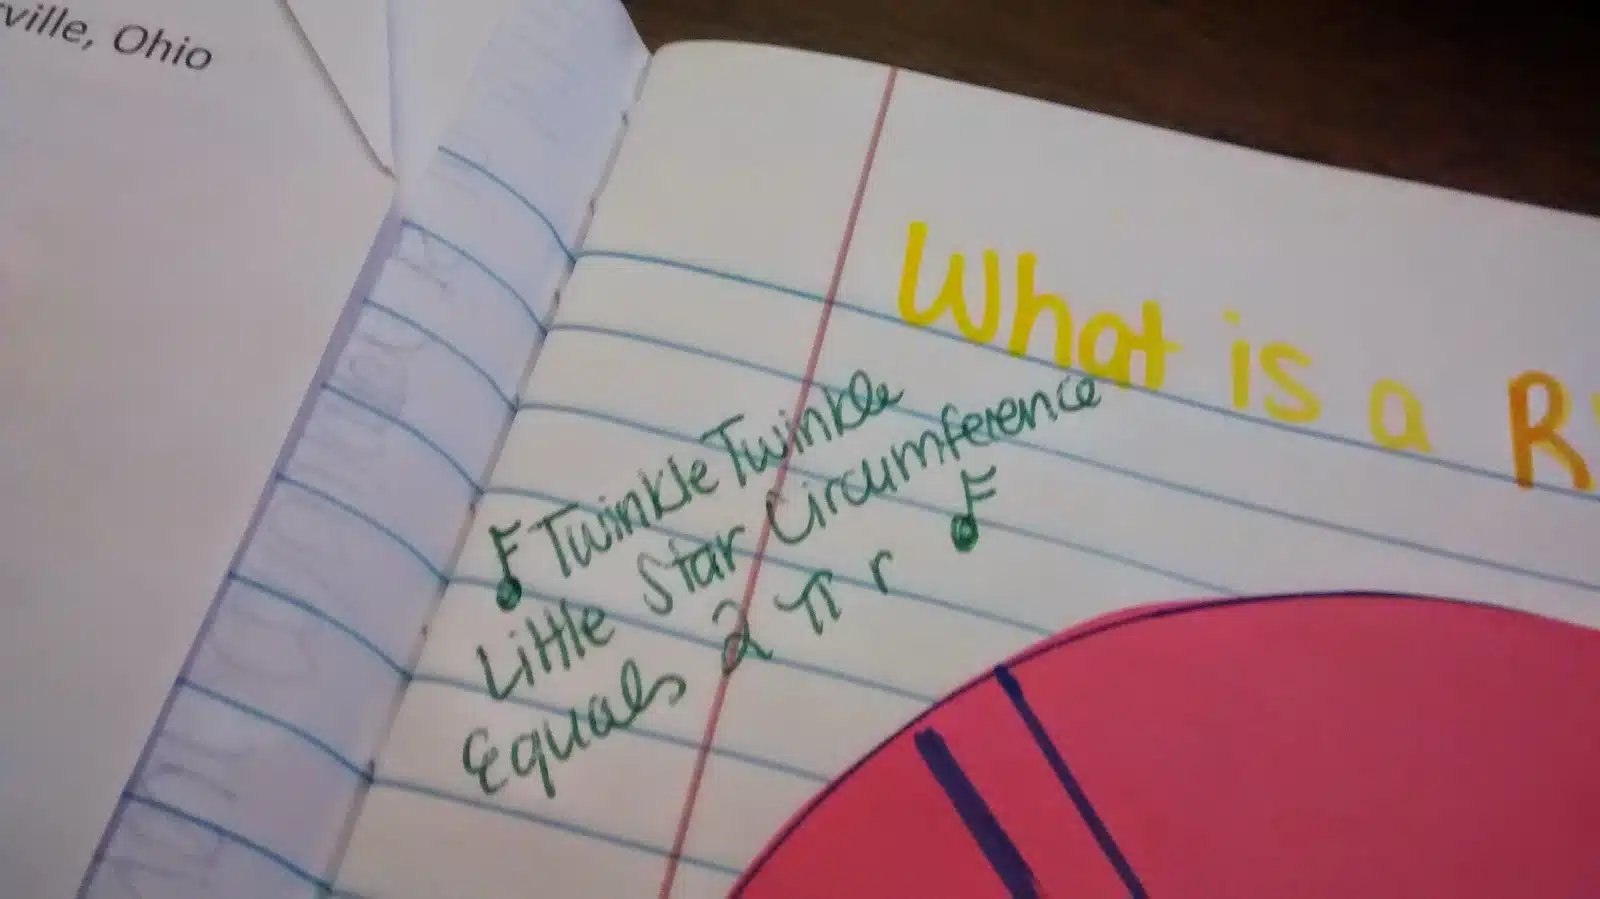 ville, Ohio
What is a R
Twinkle Twinkle
Little Star Circumference
Equals 2 π r